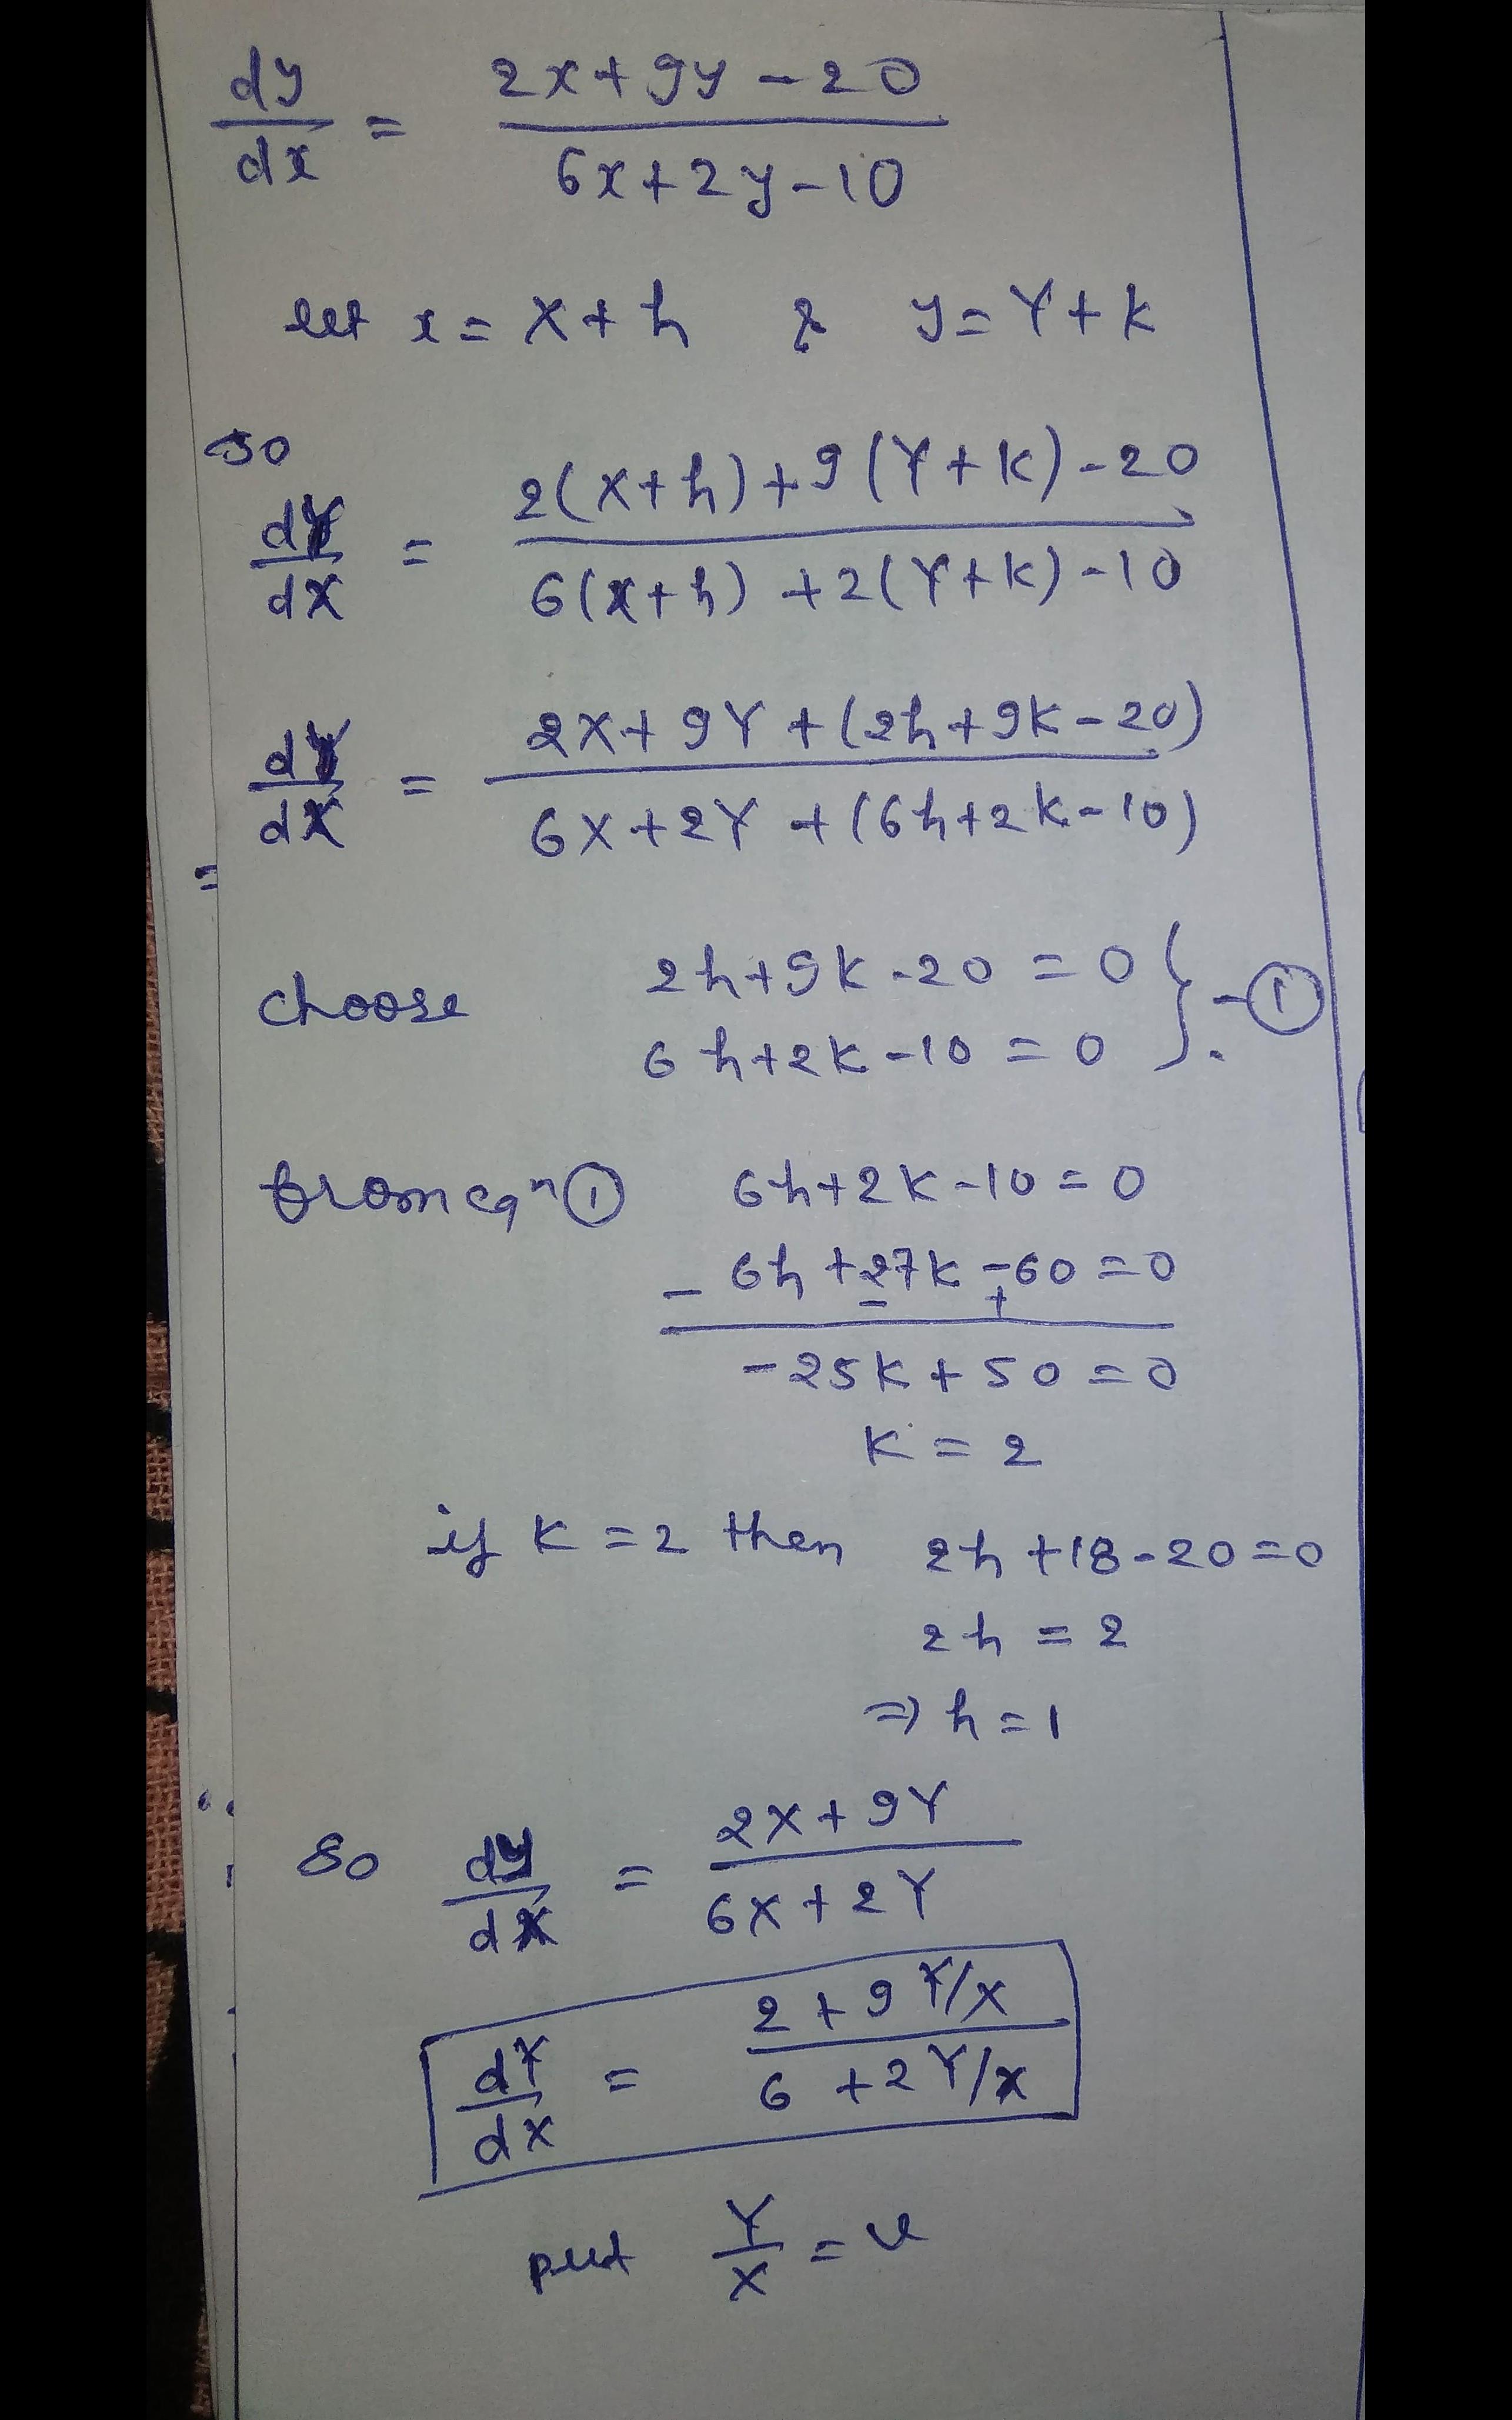 dy/dx = (2x+9y-20)/(6x+2y-10)
let x = X+h & y = Y+k
so
dY/dX = (2(X+h)+9(Y+k)-20)/(6(X+h)+2(Y+k)-10)
dY/dX = (2X+9Y+(2h+9k-20))/(6X+2Y+(6h+2k-10))
=
choose 2h+9k-20 = 0
6h+2k-10 = 0 } - ①
from eqⁿ ① 6h+2k-10 = 0
6h+27k-60 = 0
- - +
-25k+50 = 0
k = 2
if k = 2 then 2h+18-20 = 0
2h = 2
⇒ h = 1
So dY/dX = (2X+9Y)/(6X+2Y)
dY/dX = (2+9Y/X)/(6+2Y/X)
put Y/X = v